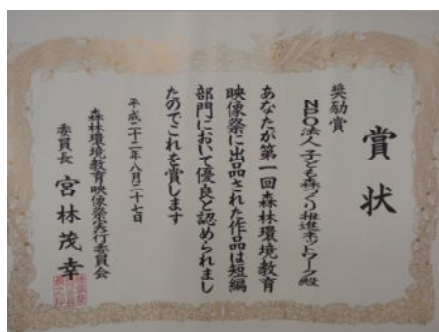 賞状
奨励賞
NPO法人子ども森づくり推進ネットワーク殿
あなたが第一回森林環境教育
映像祭に出品された作品は短編
部門において優良と認められまし
たのでこれを賞します
平成二十二年八月二十七日
森林環境教育映像祭実行委員会
委員長 宮林茂幸